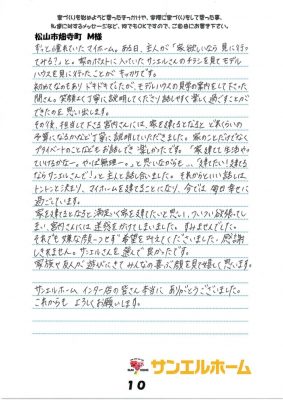 家づくりを始めようと思ったきっかけや、実際に家づくりをして思った事、
松山市畑寺町 M様
ずっと憧れていたマイホーム。ある日、主人が「家欲しいなら見に行っ
てみる？」と。家のポストに入っていたサンエルさんのチラシを見てモデル
ハウスを見に行ったことがキッカケです。
初めてなのもあり ドキドキでしたが、モデルハウスの見学の案内をして下さった
間さん。笑顔よく丁寧に説明してくださり話しやすく楽しく過ごすことが
できたのを思い出します。
その後、担当して下さる宮内さんには、家を建てるとなると どれくらいの
予算になるかなど丁寧に説明していただきました。家のことだけでなく
プライベートのことなどもお話しでき 楽しかったです。「家建てて生活やっ
ていけるかなー。やっぱ無理ー。」と思いながらも…、「建てたい！建てる
ならサンエルさんで！」と主人と話し合いました。それからという話しは
トントンと決まり、マイホームを建てることになり、今では毎日幸せに
過ごしています。
家を建てるとなると 満足いく家を建てたいと思い、ついつい欲張ってし
まい、宮内さんには迷惑をかけてしまいました。すみませんでした。
それでも嫌な顔一つせず希望を叶えてくださいました。感謝
しきれません。サンエルを選んで良かったです。
家族や友人が遊びにきてみんなの喜ぶ顔を見て嬉しく思います。
サンエルホーム インター店の皆さん本当に ありがとうございました。
これからも よろしくお願いします。
サンエルホーム
10